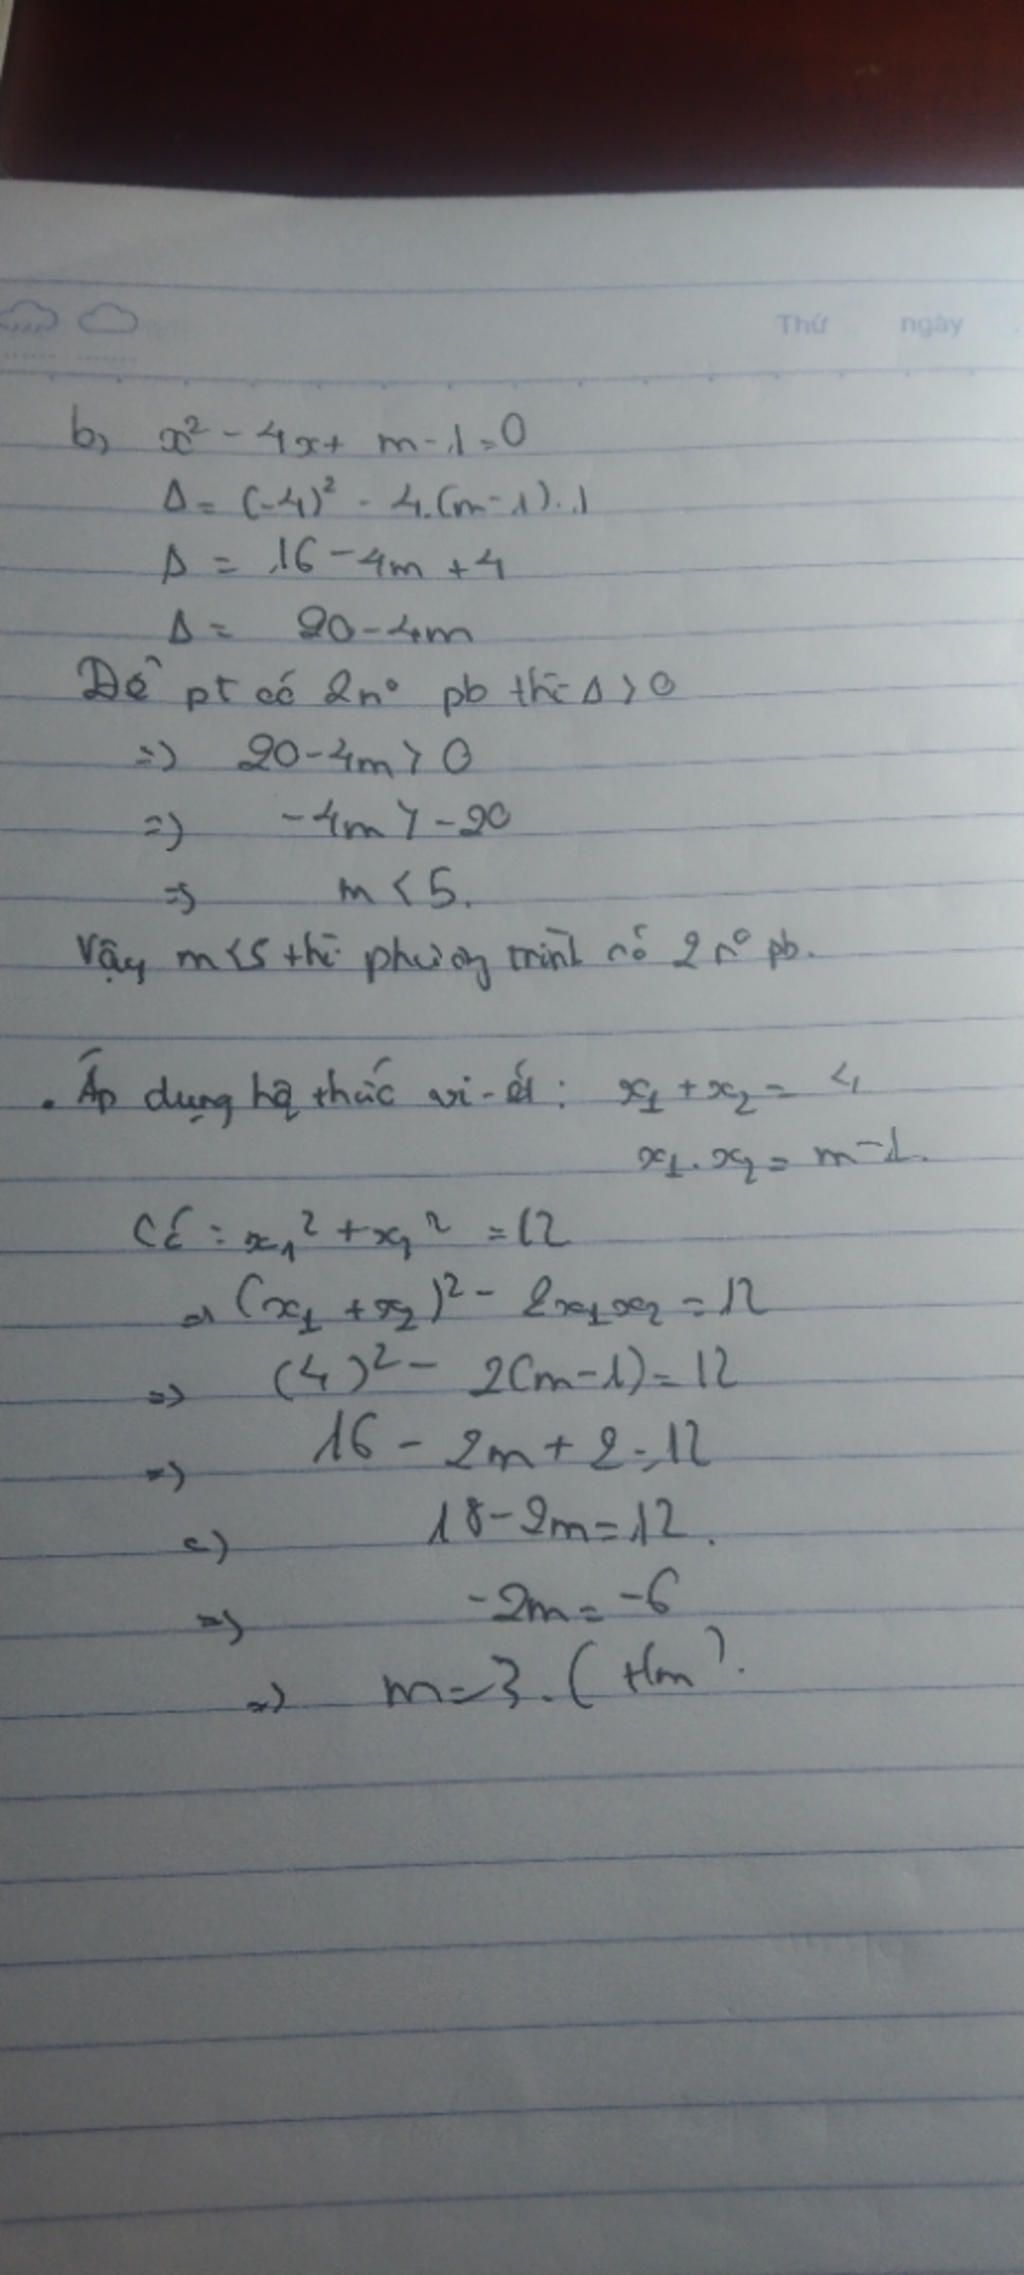 Thứ ngày
b, x² - 4x + m - 1 = 0
Δ = (-4)² - 4.(m-1).1
Δ = 16 - 4m + 4
Δ = 20 - 4m
Để pt có 2 n° pb thì Δ > 0
=> 20 - 4m > 0
=> -4m > -20
=> m < 5.
Vậy m < 5 thì phương trình có 2 n° pb.
. Áp dụng hệ thức vi-ét : x₁ + x₂ = 4
x₁ . x₂ = m - 1.
: x₁² + x₂² = 12
=> (x₁ + x₂)² - 2x₁x₂ = 12
=> (4)² - 2(m-1) = 12
=> 16 - 2m + 2 = 12
=> 18 - 2m = 12.
=> -2m = -6
=> m = 3. (t/m).